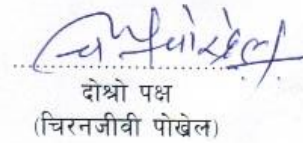 दोश्रो पक्ष
(चिरनजीवी पोख्रेल)